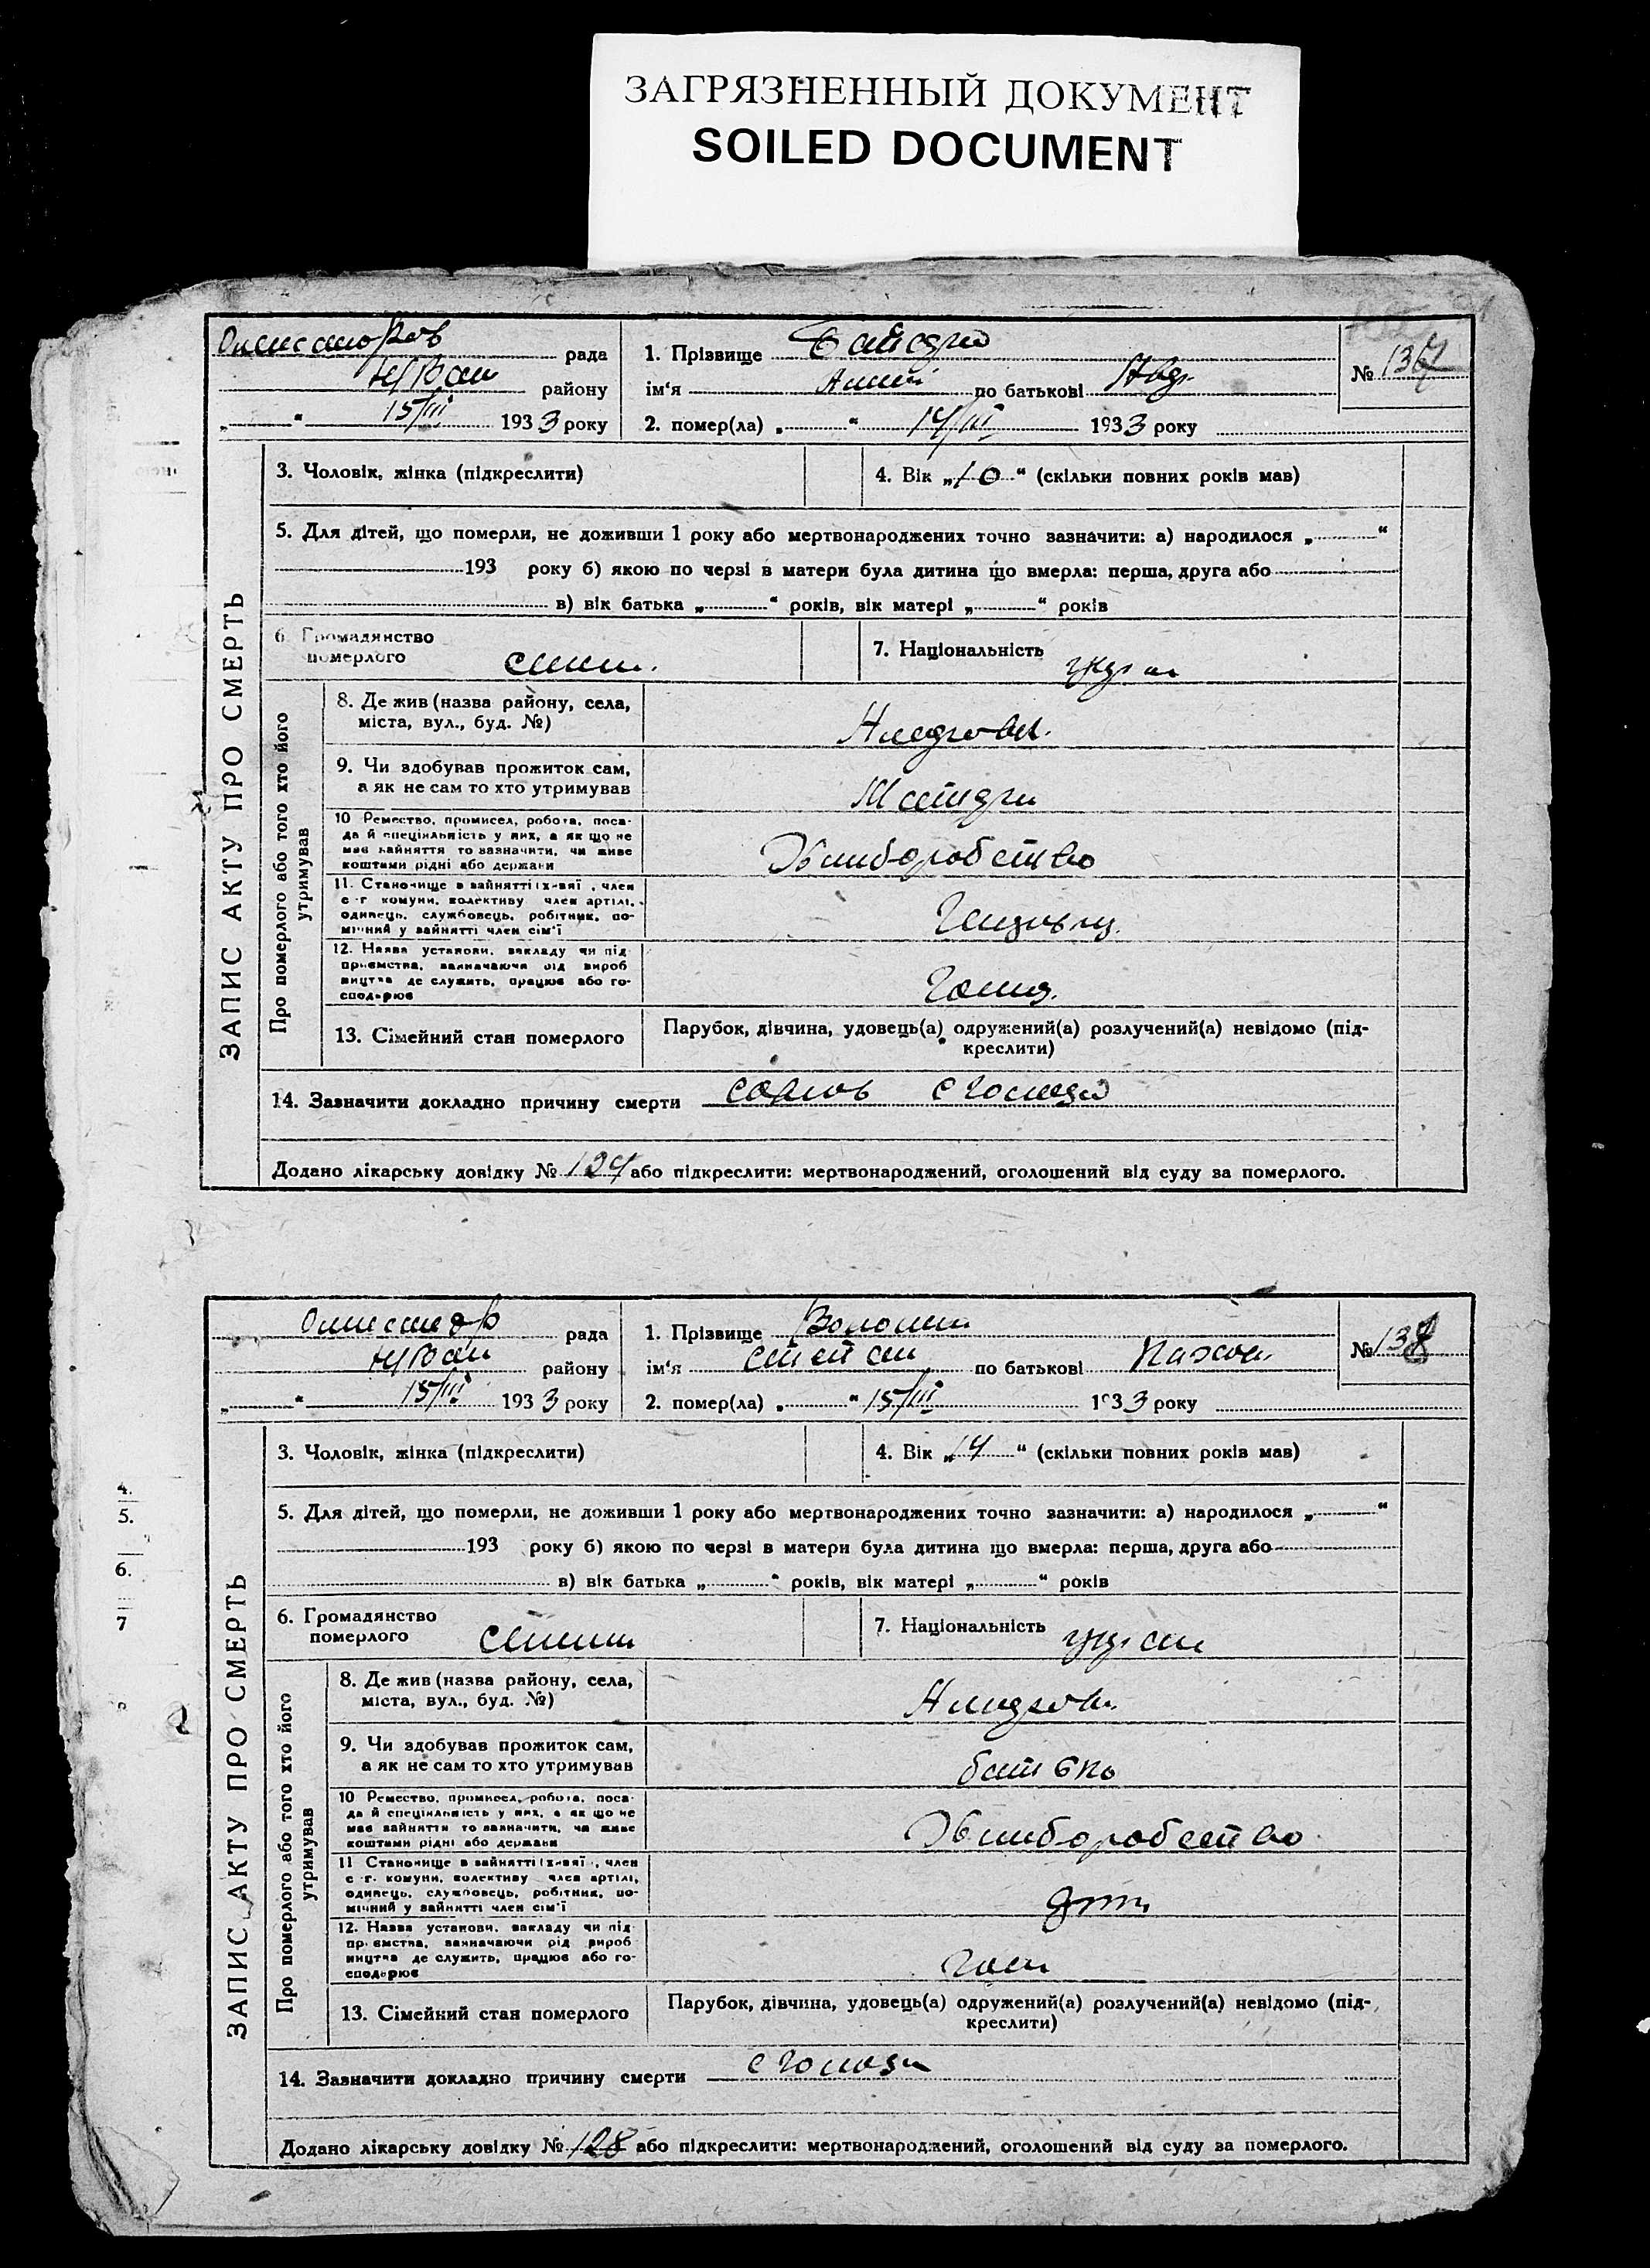 ЗАГРЯЗНЕННЫЙ ДОКУМЕНТ
SOILED DOCUMENT
рада
району
15/III 1933 року
1. Прізвище
ім‘я по батькові
2. помер(ла) „ “ 14/III 1933 року
№ 137
ЗАПИС АКТУ ПРО СМЕРТЬ
3. Чоловік, жінка (підкреслити)
4. Вік „10“ (скільки повних років мав)
5. Для дітей, що померли, не доживши 1 року або мертвонароджених точно зазначити: а) народилося „ “
193 року б) якою по черзі в матери була дитина що вмерла: перша, друга або
в) вік батька „ “ років, вік матері „ “ років
6. Громадянство
померлого
7. Національність
Про померлого або того хто його
утримував
8. Де жив (назва району, села,
міста, вул., буд. №)
9. Чи здобував прожиток сам,
а як не сам то хто утримував
10 Ремество, промисел, робота, поса-
да й спеціяльність у них, а як що не
має зайняття то зазначити, чи живе
коштами рідні або держави
Хліборобство
11. Становище в зайнятті член
с-г комуни, колективу член артілі,
одинець, службовець, робітник, по-
мічний у зайнятті член сім‘ї
12. Назва установи, закладу чи під-
приємства, зазначаючи рід вироб
ництва де служить, працює або го-
сподарює
13. Сімейний стан померлого
Парубок, дівчина, удовець(а) одружений(а) розлучений(а) невідомо (під-
креслити)
14. Зазначити докладно причину смерти
с голоду
Додано лікарську довідку № 127 або підкреслити: мертвонароджений, оголошений від суду за померлого.
рада
району
15/III 1933 року
1. Прізвище
ім‘я Степан по батькові
2. помер(ла) „ “ 15/III 1933 року
№ 138
ЗАПИС АКТУ ПРО СМЕРТЬ
3. Чоловік, жінка (підкреслити)
4. Вік „14“ (скільки повних років мав)
5. Для дітей, що померли, не доживши 1 року або мертвонароджених точно зазначити: а) народилося „ “
193 року б) якою по черзі в матери була дитина що вмерла: перша, друга або
в) вік батька „ “ років, вік матері „ “ років
6. Громадянство
померлого
7. Національність
Про померлого або того хто його
утримував
8. Де жив (назва району, села,
міста, вул., буд. №)
9. Чи здобував прожиток сам,
а як не сам то хто утримував
батько
10 Ремество, промисел, робота, поса-
да й спеціяльність у них, а як що не
має зайняття то зазначити, чи живе
коштами рідні або держави
Хліборобство
11 Становище в зайнятті член
с-г. комуни, колективу член артілі,
одинець, службовець, робітник, по-
мічний у зайнятті член сім‘ї
12. Назва установи, закладу чи під-
приємства, зазначаючи рід вироб
ництва де служить, працює або го-
сподарює
13. Сімейний стан померлого
Парубок, дівчина, удовець(а) одружений(а) розлучений(а) невідомо (під-
креслити)
14. Зазначити докладно причину смерти
с голоду
Додано лікарську довідку № 128 або підкреслити: мертвонароджений, оголошений від суду за померлого.
4.
5.
6.
7